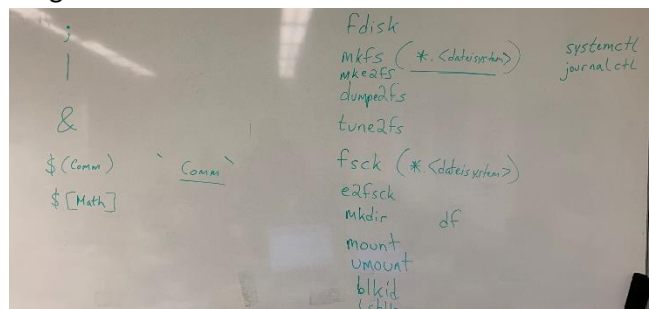 ;
|
&
$(Comm) ` Comm `
$[Math]
fdisk
mkfs (*.<dateisystem>)
mke2fs
dumpe2fs
tune2fs
fsck (*.<dateisystem>)
e2fsck
mkdir df
mount
umount
blkid
systemctl
journalctl